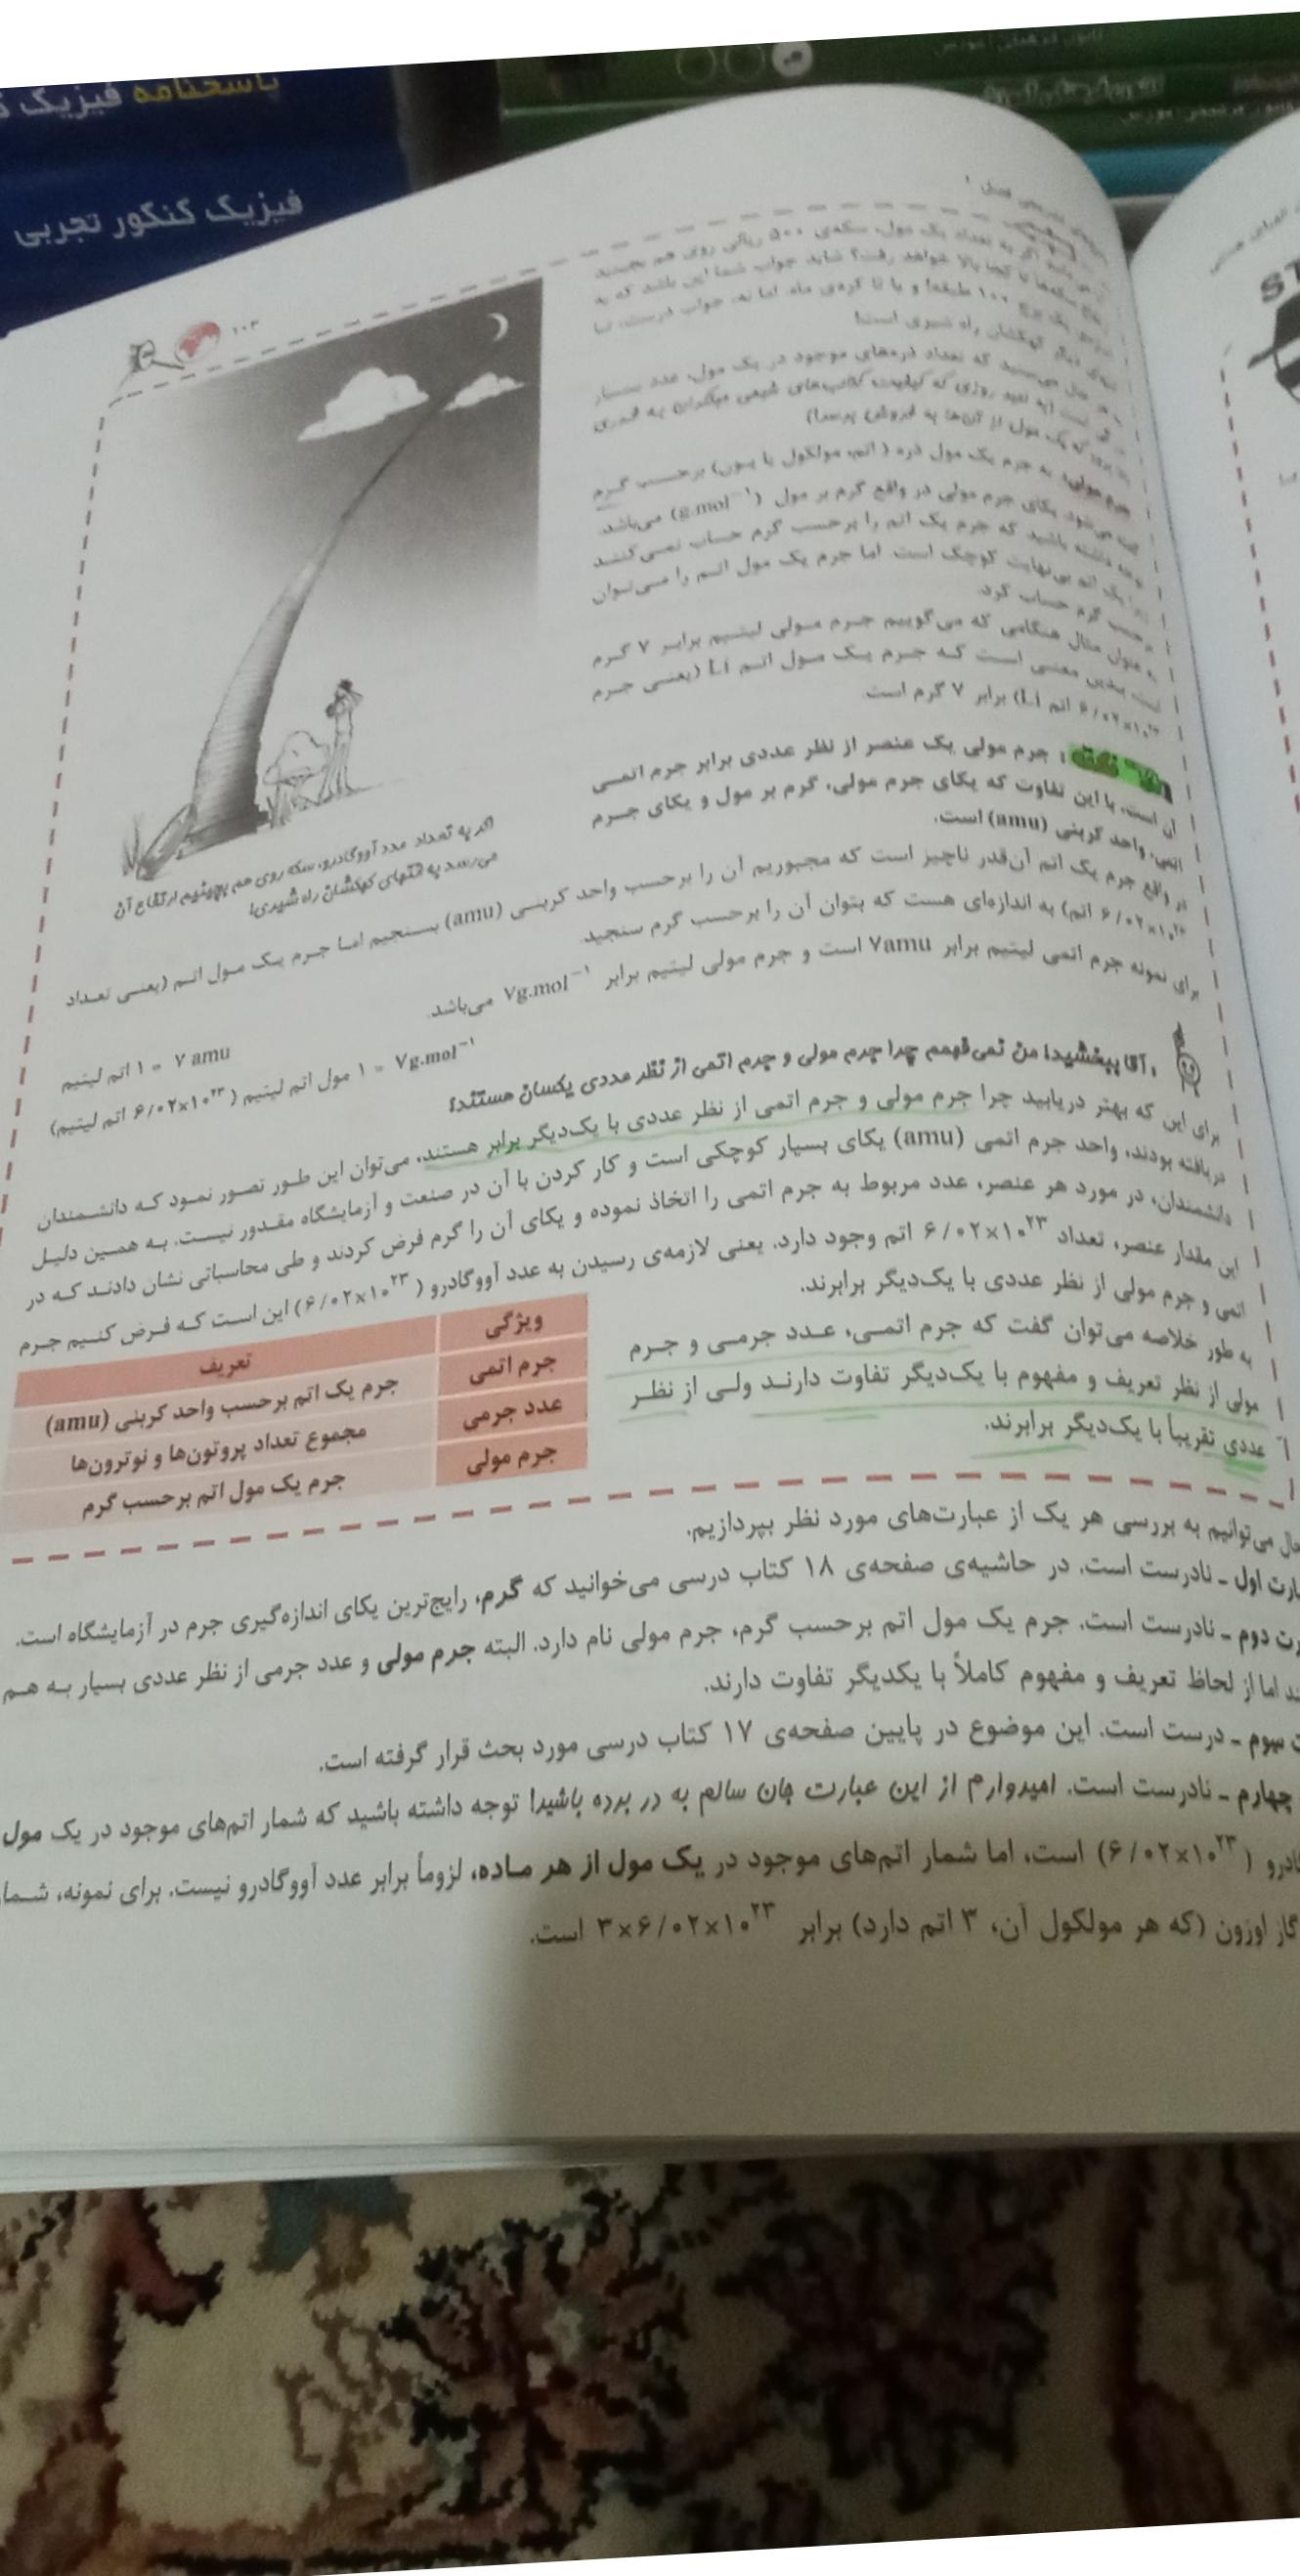 پاسخنامه فیزیک
فیزیک کنکور تجربی
۱۰۳
به تعداد یک مول، سکه‌ی ۵۰۰ ریالی روی هم بچینید
سکه‌ها تا کجا بالا خواهد رفت؟ شاید جواب شما این باشد که به
یک برج ۱۰۰ طبقه! و یا تا کره‌ی ماه. اما نه، جواب درست، تا
دیگر کهکشان راه شیری است!
که تعداد ذره‌های موجود در یک مول، عدد بسیار
جرم مولی: به جرم یک مول ذره (اتم، مولکول یا یون) برحسب گرم
گفته می‌شود. یکای جرم مولی در واقع گرم بر مول (g.mol⁻¹) می‌باشد.
توجه داشته باشید که جرم یک اتم را برحسب گرم حساب نمی‌کنند
زیرا یک اتم بی‌نهایت کوچک است. اما جرم یک مول اتم را می‌توان
برحسب گرم حساب کرد.
به عنوان مثال هنگامی که می‌گوییم جرم مولی لیتیم برابر ۷ گرم
است، بدین معنی است که جرم یک مول اتم Li (یعنی جرم
۶/۰۲×۱۰²³ اتم Li) برابر ۷ گرم است.
نکته: جرم مولی یک عنصر از نظر عددی برابر جرم اتمی
آن است، با این تفاوت که یکای جرم مولی، گرم بر مول و یکای جرم
اتمی، واحد کربنی (amu) است.
اگر به تعداد عدد آووگادرو، سکه روی هم بچینیم ارتفاع آن
می‌رسد به انتهای کهکشان راه شیری!
در واقع جرم یک اتم آن‌قدر ناچیز است که مجبوریم آن را برحسب واحد کربنی (amu) بسنجیم اما جرم یک مول اتم (یعنی تعداد
۶/۰۲×۱۰²³ اتم) به اندازه‌ای هست که بتوان آن را برحسب گرم سنجید.
برای نمونه جرم اتمی لیتیم برابر ۷amu است و جرم مولی لیتیم برابر ۷g.mol⁻¹ می‌باشد.
۱ اتم لیتیم = ۷ amu
۱ مول اتم لیتیم (۶/۰۲×۱۰²³ اتم لیتیم) = ۷g.mol⁻¹
آقا ببخشید! من نمی‌فهمم چرا جرم مولی و جرم اتمی از نظر عددی یکسان هستند؟
برای این که بهتر دریابید چرا جرم مولی و جرم اتمی از نظر عددی با یک‌دیگر برابر هستند، می‌توان این طور تصور نمود که دانشمندان
دریافته بودند، واحد جرم اتمی (amu) یکای بسیار کوچکی است و کار کردن با آن در صنعت و آزمایشگاه مقدور نیست. به همین دلیل
دانشمندان، در مورد هر عنصر، عدد مربوط به جرم اتمی را اتخاذ نموده و یکای آن را گرم فرض کردند و طی محاسباتی نشان دادند که در
این مقدار عنصر، تعداد ۶/۰۲×۱۰²³ اتم وجود دارد. یعنی لازمه‌ی رسیدن به عدد آووگادرو (۶/۰۲×۱۰²³) این است که فرض کنیم جرم
اتمی و جرم مولی از نظر عددی با یک‌دیگر برابرند.
به طور خلاصه می‌توان گفت که جرم اتمی، عدد جرمی و جرم
مولی از نظر تعریف و مفهوم با یک‌دیگر تفاوت دارند ولی از نظر
عددی تقریباً با یک‌دیگر برابرند.
ویژگی تعریف
جرم اتمی جرم یک اتم برحسب واحد کربنی (amu)
عدد جرمی مجموع تعداد پروتون‌ها و نوترون‌ها
جرم مولی جرم یک مول اتم برحسب گرم
حال می‌توانیم به بررسی هر یک از عبارت‌های مورد نظر بپردازیم.
اول ـ نادرست است. در حاشیه‌ی صفحه‌ی ۱۸ کتاب درسی می‌خوانید که گرم، رایج‌ترین یکای اندازه‌گیری جرم در آزمایشگاه است.
دوم ـ نادرست است. جرم یک مول اتم برحسب گرم، جرم مولی نام دارد. البته جرم مولی و عدد جرمی از نظر عددی بسیار به هم
اما از لحاظ تعریف و مفهوم کاملاً با یکدیگر تفاوت دارند.
سوم ـ درست است. این موضوع در پایین صفحه‌ی ۱۷ کتاب درسی مورد بحث قرار گرفته است.
چهارم ـ نادرست است. امیدوارم از این عبارت جان سالم به در برده باشید! توجه داشته باشید که شمار اتم‌های موجود در یک مول
(۶/۰۲×۱۰²³) است، اما شمار اتم‌های موجود در یک مول از هر ماده، لزوماً برابر عدد آووگادرو نیست. برای نمونه، شمار
گاز اوزون (که هر مولکول آن، ۳ اتم دارد) برابر ۳×۶/۰۲×۱۰²³ است.